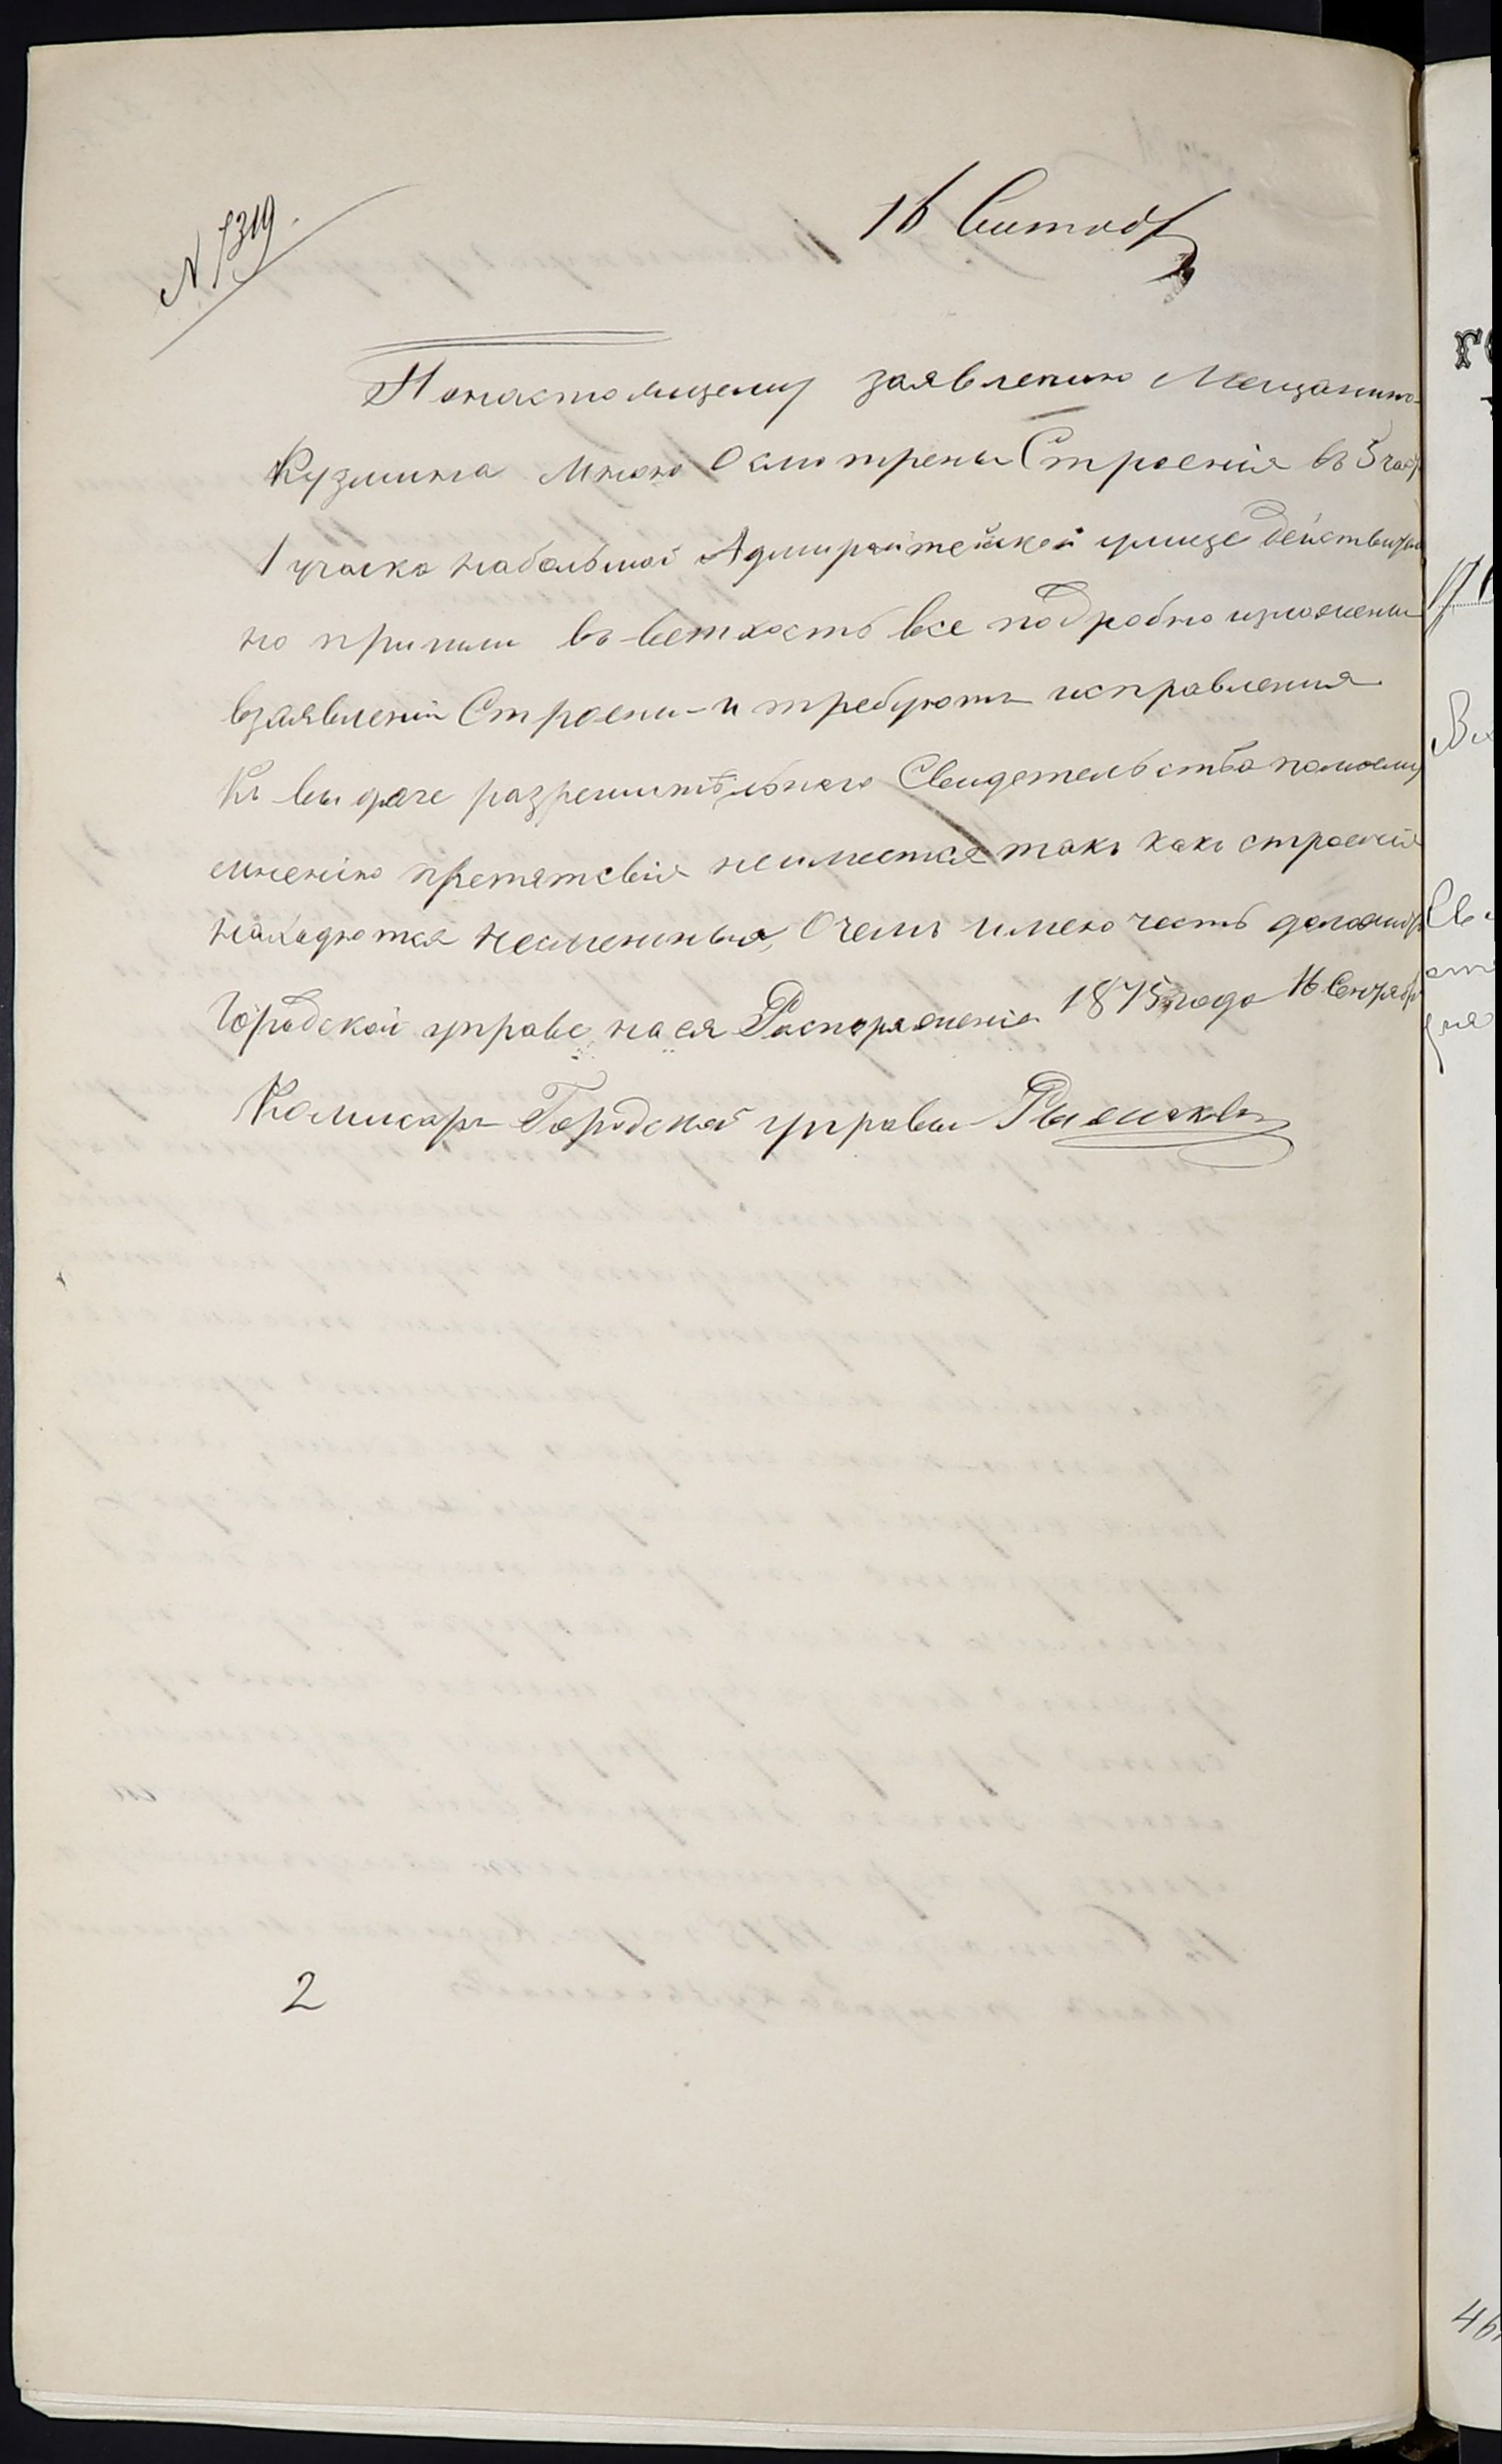 N 1319.
16 Сентяб
Понастоящему заявлению Мещанино-
Кузмина Мною Осмотрены Строения въ 5 час
1 участка набольшой Адмиралтейской улице действитель
но пришли въ ветхость все подробно изложенные
взаявлении Строени-и требуютъ исправления
Къ выдаче разрешительного Свидетельства помоему
мнению препятсвия неимеется такъ какъ строения
находются несмежныя, Очемъ имею честь доложить
Городской управе на ея Распоряжения 1875 года 16 Сентября
Комисаръ Городской управы
2